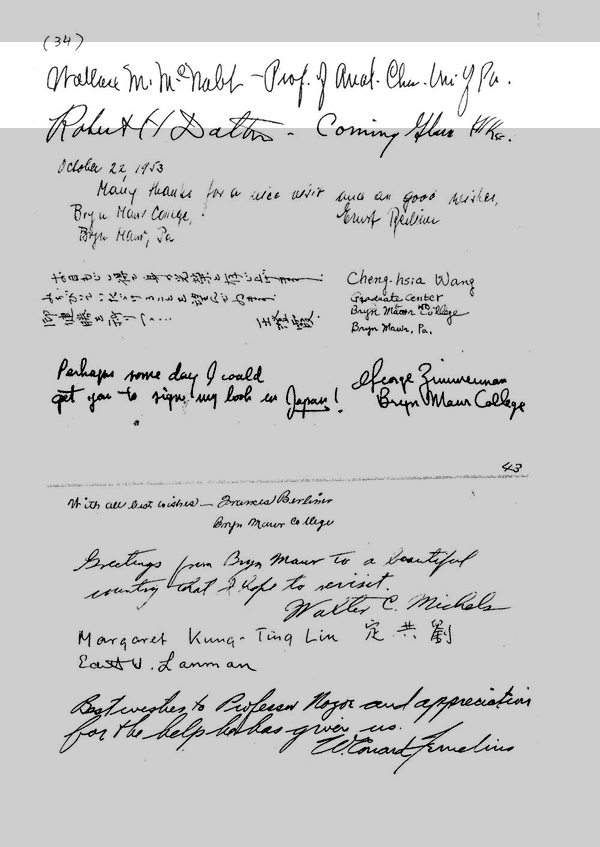 (34)
Wallace M. McNabb - Prof. of Anal. Chem. Uni. of Pa.
Robert H Dalton - Coming Glass Wks.
October 22, 1953
Many thanks for a nice visit and an good wishes,
Bryn Mawr College, Ernst Berliner
Bryn Mawr, Pa
Cheng-hsia Wang
Graduate Center
Bryn Mawr College
Bryn Mawr, Pa.
Perhaps some day I could George Zimmerman
get you to sign my book in Japan! Bryn Mawr College
43
With all best wishes — Frances Berliner
Bryn Mawr College
Greetings from Bryn Mawr to a beautiful
country that I hope to revisit.
Walter C. Michels
Margaret Kung-Ting Liu 定 共 劉
East W. Lanman
Best wishes to Professor Nozoe and appreciation
for the help he has given us.
W. Conard Fernelius